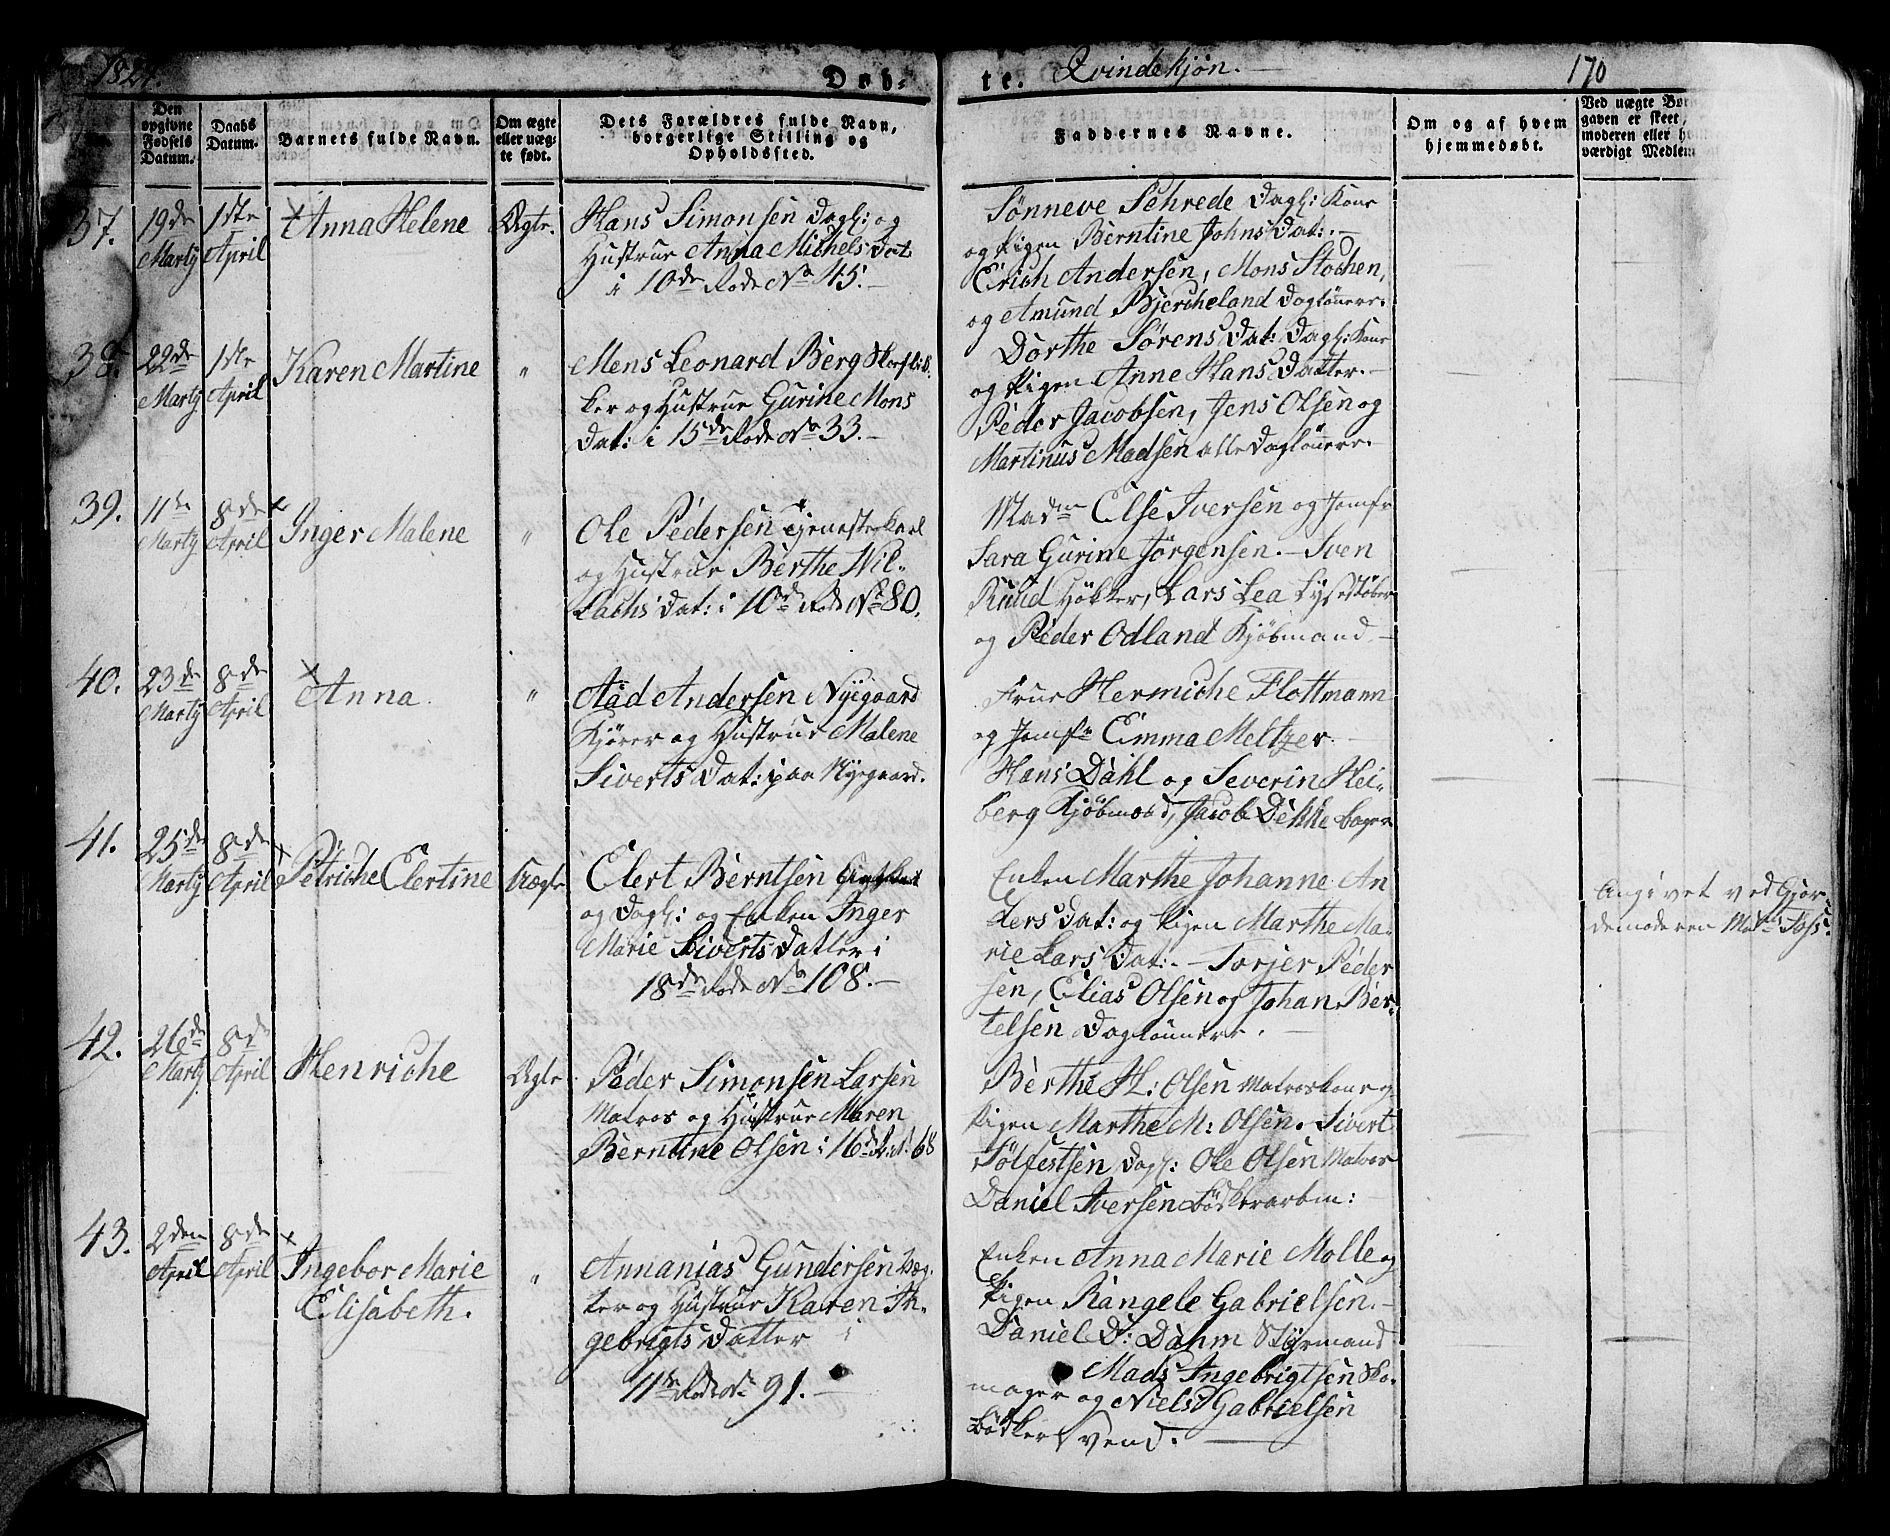 1824.
Døb-
te. Qvindekjøn.
170
Den opgivne Fødsels Datum.
Daabs Datum.
Barnets fulde Navn.
Om ægte eller uægte født.
Dets Forældres fulde Navn, borgerlige Stilling og Opholdssted.
Faddernes Navne.
Om og af hvem hjemmedøbt.
Ved uægte Bør
gaven er skeet,
moderen eller h
værdigt Medlem
37.
19de Martij
1ste April
Anna Helene
Ægte.
Hans Simonsen Dagl: og
Hustrue Anna Michels Dat
i 10de Rode No 45.
Sønneve Schrede Dagl: Kone
og Pigen Berntine Johns Dat:
Erich Andersen, Mons Stochen,
og Amund Bjercheland Daglønnere.
38.
22de Martij
1ste April
Karen Martine
"
Mens Leonard Berg
ker og Hustrue Gurine Mons
Dat: i 15de Rode No 33.
Dorthe Sørens Dat: Dagl: Kone
og Pigen Anne Hans Datter.
Peder Jacobsen, Jens Olsen og
Martinus Madsen alle Daglønnere.
39.
11te Martij
8de April
Inger Malene
"
Ole Pedersen Tjenestekarl
og Hustrue Berthe Nil-
Lachs Dat: i 10de Rode No 80.
Madm Else Iversen og Jomfr
Sara Gurine Jørgensen. Sven
Ruud Høker, Lars Lea Lysestøber
og Peder Odland Kjøbmand
40.
23de Martij
8de April
Anna
"
Aad Andersen Nyegaard
Kjører og Hustrue Malene
Siverts Dat: paa Nyegaard.
Frue Hermiche Flottmann
og Jomfr Emma Meltzer
Hans Dahl og Severin Hei-
berg Kjøbmænd, Jacob Dekke bager
41.
25de Martij
8de April
Petriche Elertine
Uægte
Elert Berntsen
og Dagl: og Enken Inger
Marie Siverts Datter i
18de Rode No 108.
Enken Marthe Johanne An
ders Dat: og Pigen Marthe Ma-
rie Lars Dat: Torjer Peder
sen, Elias Olsen og Johan Ber-
telsen Daglønnere.
Angivet ved Gjor-
demoderen Mad: Foss.
42.
26de Martij
8de April
Henriche
Ægte
Peder Simonsen Larsen
Matros og Hustrue Maren
Berntine Olsen i 16de R. No 68
Berthe H: Olsen Matroskone og
Pigen Marthe M: Olsen. Sivert
Tølfestsen Dagl: Ole Olsen Matros
Daniel Iversen Bødkerarbm:
43.
2den April
8de April
Ingebor Marie
Elisabeth.
"
Annanias Gundersen Væg-
ter og Hustrue Karen In-
gebrigts Datter i
11te Rode No 91.
Enken Anna Marie Molle og
Pigen Rangele Gabrielsen.
Daniel D: Dahm Styrmand
Mads Ingebrigtsen Sko-
mager og Niels Gabrielsen
Bødkersvend.